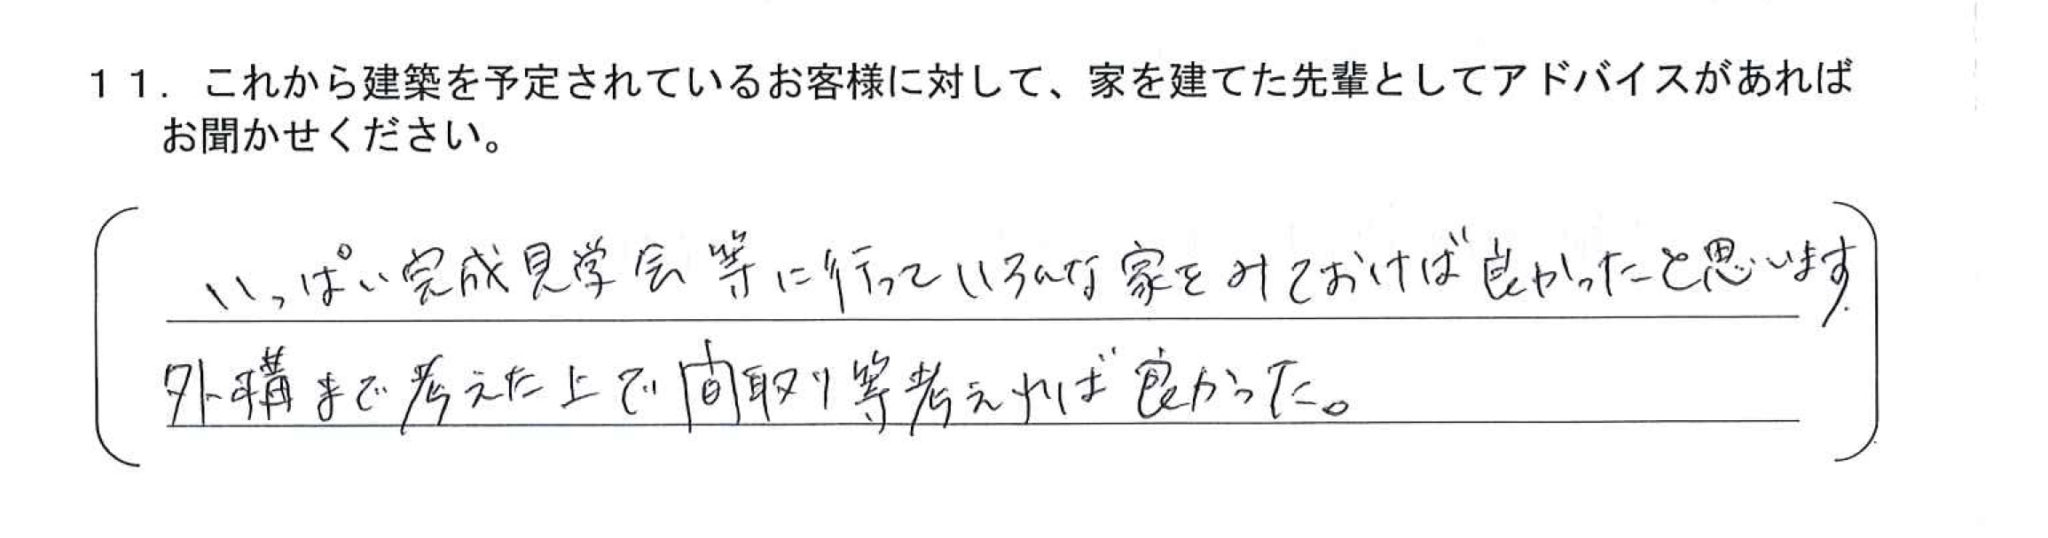 １１．これから建築を予定されているお客様に対して、家を建てた先輩としてアドバイスがあれば
お聞かせください。
いっぱい完成見学会等に行っていろんな家をみておけば良かったと思います.
外構まで考えた上で間取り等考えれば良かった。